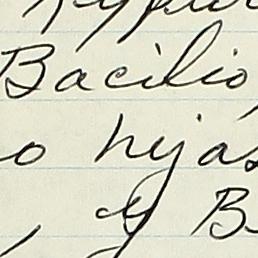 Bacilio
o hijas
, y B